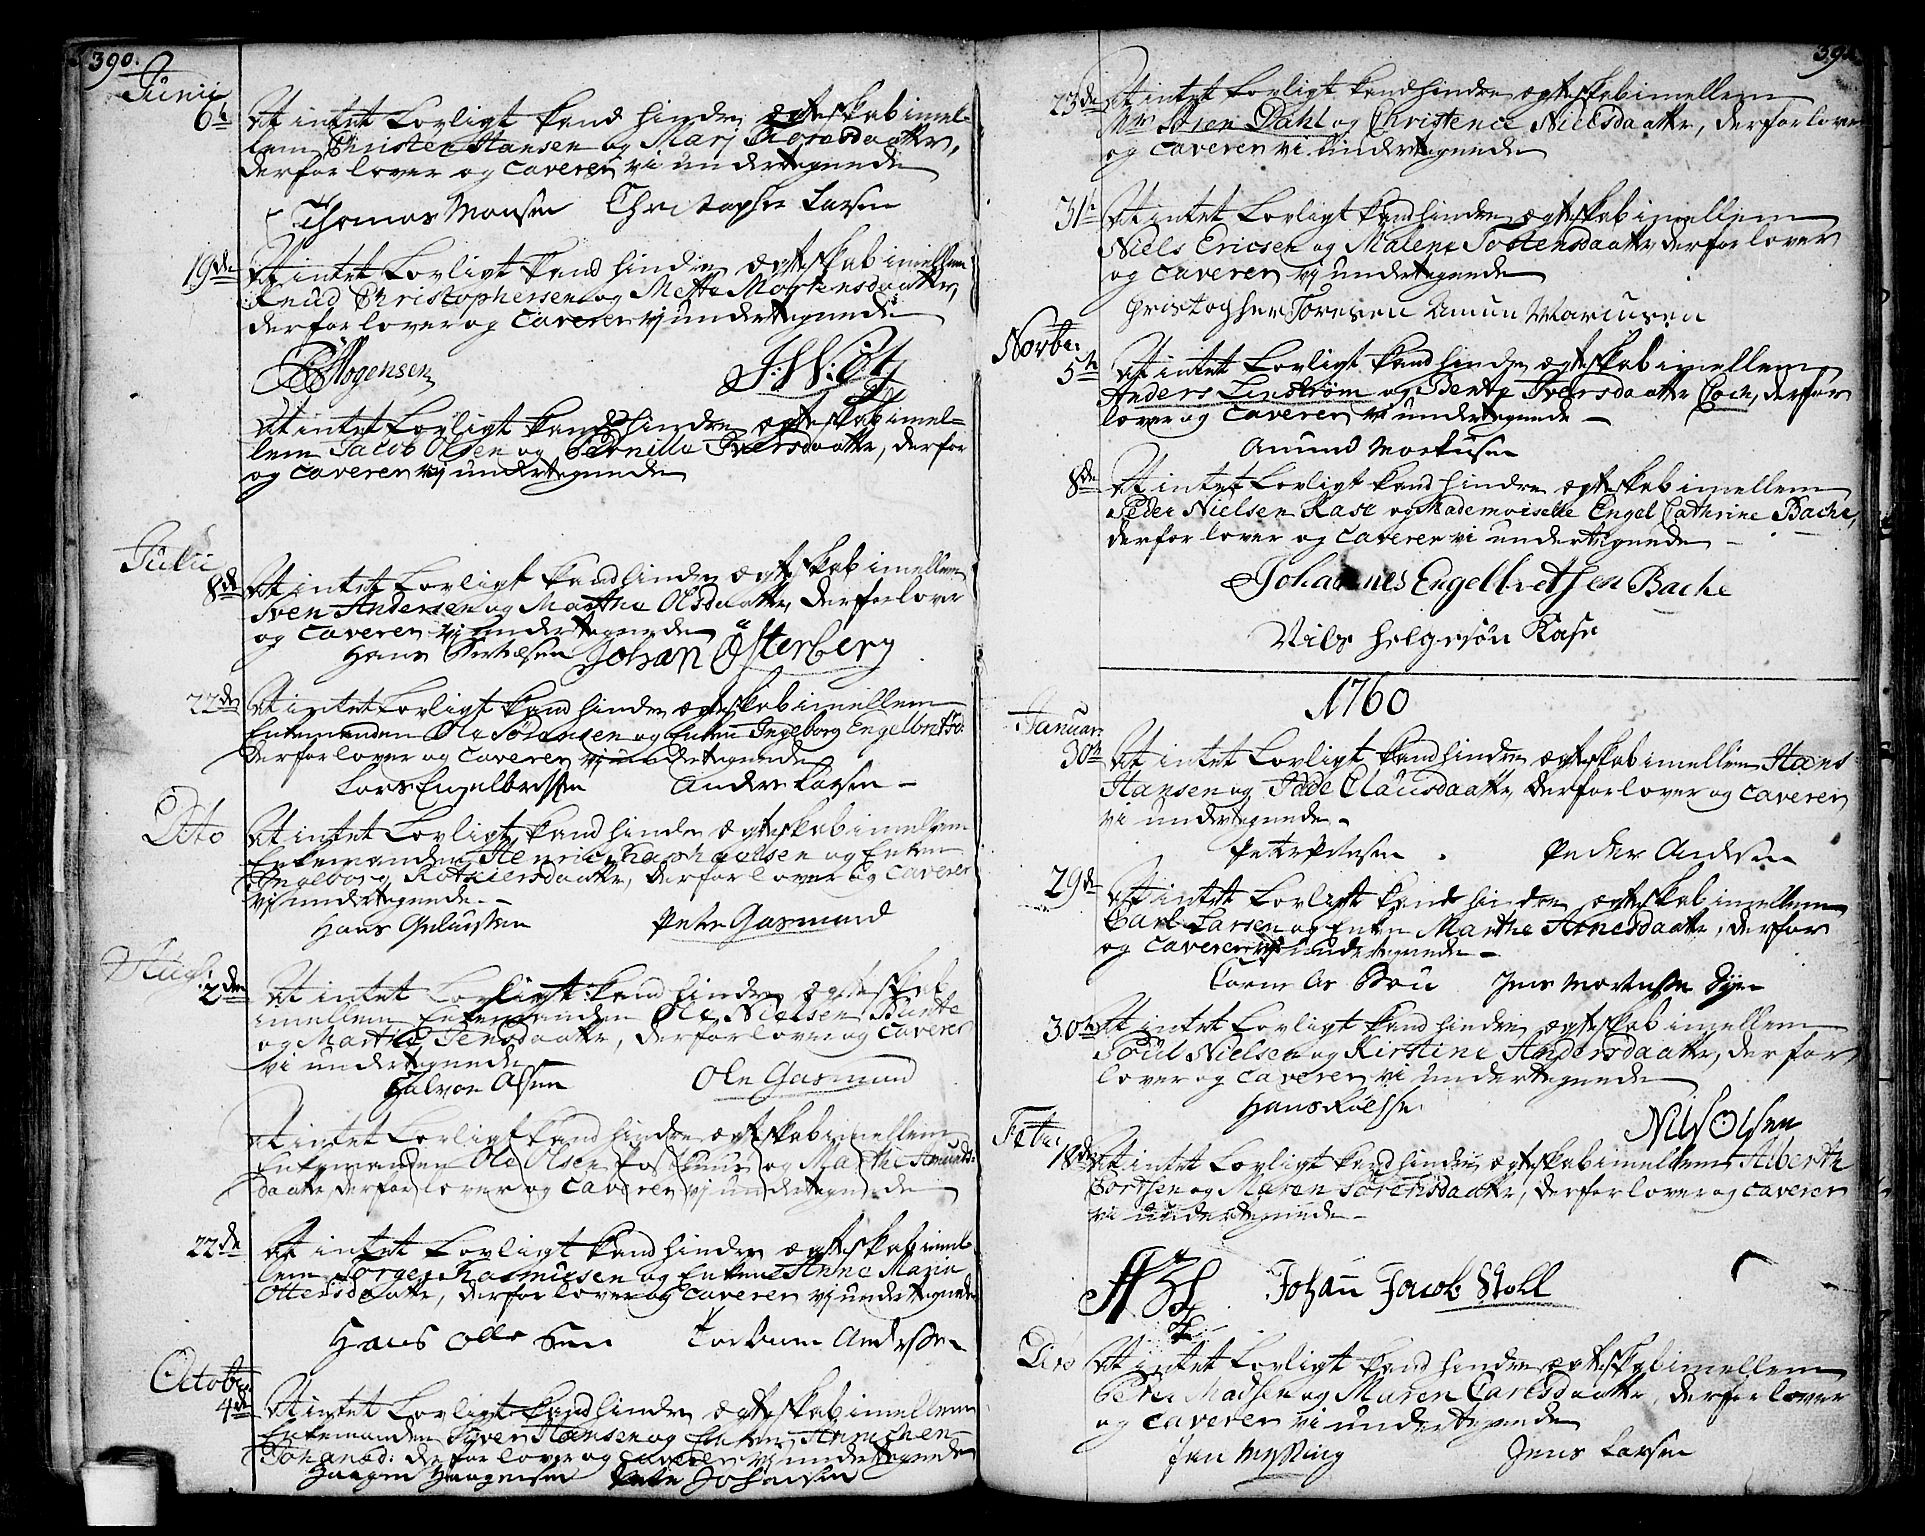 390.
Junii
6t At intet Lovligt kand hindre ægteskab imel-
lem Christen Hansen og Marj daatter,
derfor lover og caverer vi undertegnede
Thomas Monsen Christopher Larsen
19de At intet Lovligt kand hindre ægteskab imellem
Knud Christophersen og Mette Mortensdaatter,
derfor lover og caverer vj undertegnede
Mogensen
At intet Lovligt kand hindre ægteskab imel-
lem Jacob Olsen og Pernille Iversdaatter, derfor
og caverer vj undertegnede
Julii
8de At intet Lovligt kand hindre ægteskab imellem
Sven Andersen og Marthe Olsdaatter, derfor lover
og caverer vi undertegnede
Hans Johan Österberg
22de At intet Lovligt kand hindre ægteskab imellem
Enkemanden Ole Sörensen og Enken Ingeborg Engelbretsd:
derfor lover og caverer vj undertegnede
Lars Engelbretsen Anders Larsen
Dito At intet Lovligt kand hindre ægteskab imellem
Enkemanden Henric Raphaelsen og Enken
Ingeborg daatter, derfor lover og caverer
vj undertegnede.
Hans Peter Gasmand
2den At intet Lovligt kand hindre ægteskab
imellem Enkemanden Ole Nielsen Bunte
og Marthe Jensdaatter, derfor lover og caverer
vi undertegnede
Halvor Olsen Ole Gasmand
At intet Lovligt kand hindre ægteskab imellem
Enkemanden Ole Olsen og Marthe Amunds:
daatter, derfor lover og caverer vj undertegnede
22de At intet Lovligt kand hindre ægteskab imel-
lem Jörgen Rasmusen og Enken Anne Maria
Ottersdaatter, derfor lover og caverer vj undertegnede
Hans Olle Sen Andersen
Octobr:
4de At intet Lovligt kand hindre ægteskab imellem
Enkemanden Syver Hansen og Enken Annichen
Johansd: derfor lover og caverer vi undertegnede
Haagen Haagensen Peter Johansen
391
23de At intet Lovligt kand hindre ægteskab imellem
Mr Sören Dahl og Christence Nielsdaatter, derfor lover
og caverer vi undertegnede
31t At intet Lovligt kand hindre ægteskab imellem
Niels Ericsen og Malene Tostensdaatter derfor lover
og caverer vj undertegnede
Christopher Toresen Amun Marcusen
Novbr:
5te At intet Lovligt kand hindre ægteskab imellem
Anders Linström og Bente Iversdaatter Coch, derfor
lover og caverer vi undertegnede
Amund Morkusen
8de At intet Lovligt kand hindre ægteskab imellem
Peder Nielsen Kase og Mademoiselle Engel Cathrine Bache,
derfor lover og caverer vi undertegnede
Johannes Engelbretsen Bache
Nils Helgesön Kase
1760
Januar:
30te At intet Lovligt kand hindre ægteskab imellem Hans
Hansen og Clausdaatter, derfor lover og caverer
vi undertegnede
Peter Petersen Peder Andersen
29de At intet Lovligt kand hindre ægteskab imellem
Carl Larsen og Enken Marthe Arnesdaatter, derfor
og caverer vi undertegnede
Jens Mortensen
30te At intet Lovligt kand hindre ægteskab imellem
Poul Nielsen og Kirstine Andersdaatter, derfor
lover og caverer vi undertegnede
Hans Nils Olsen
Febr:
18de At intet Lovligt kand hindre ægteskab imellem Alberth
og Maren Sörensdaatter, derfor lover og caverer
vi undertegnede
Johan Jacob Stoll
Dito At intet Lovligt kand hindre ægteskab imellem
Peder Madsen og Maren Carlsdaatter, derfor lover
og caverer vi undertegnede
Jens Larsen